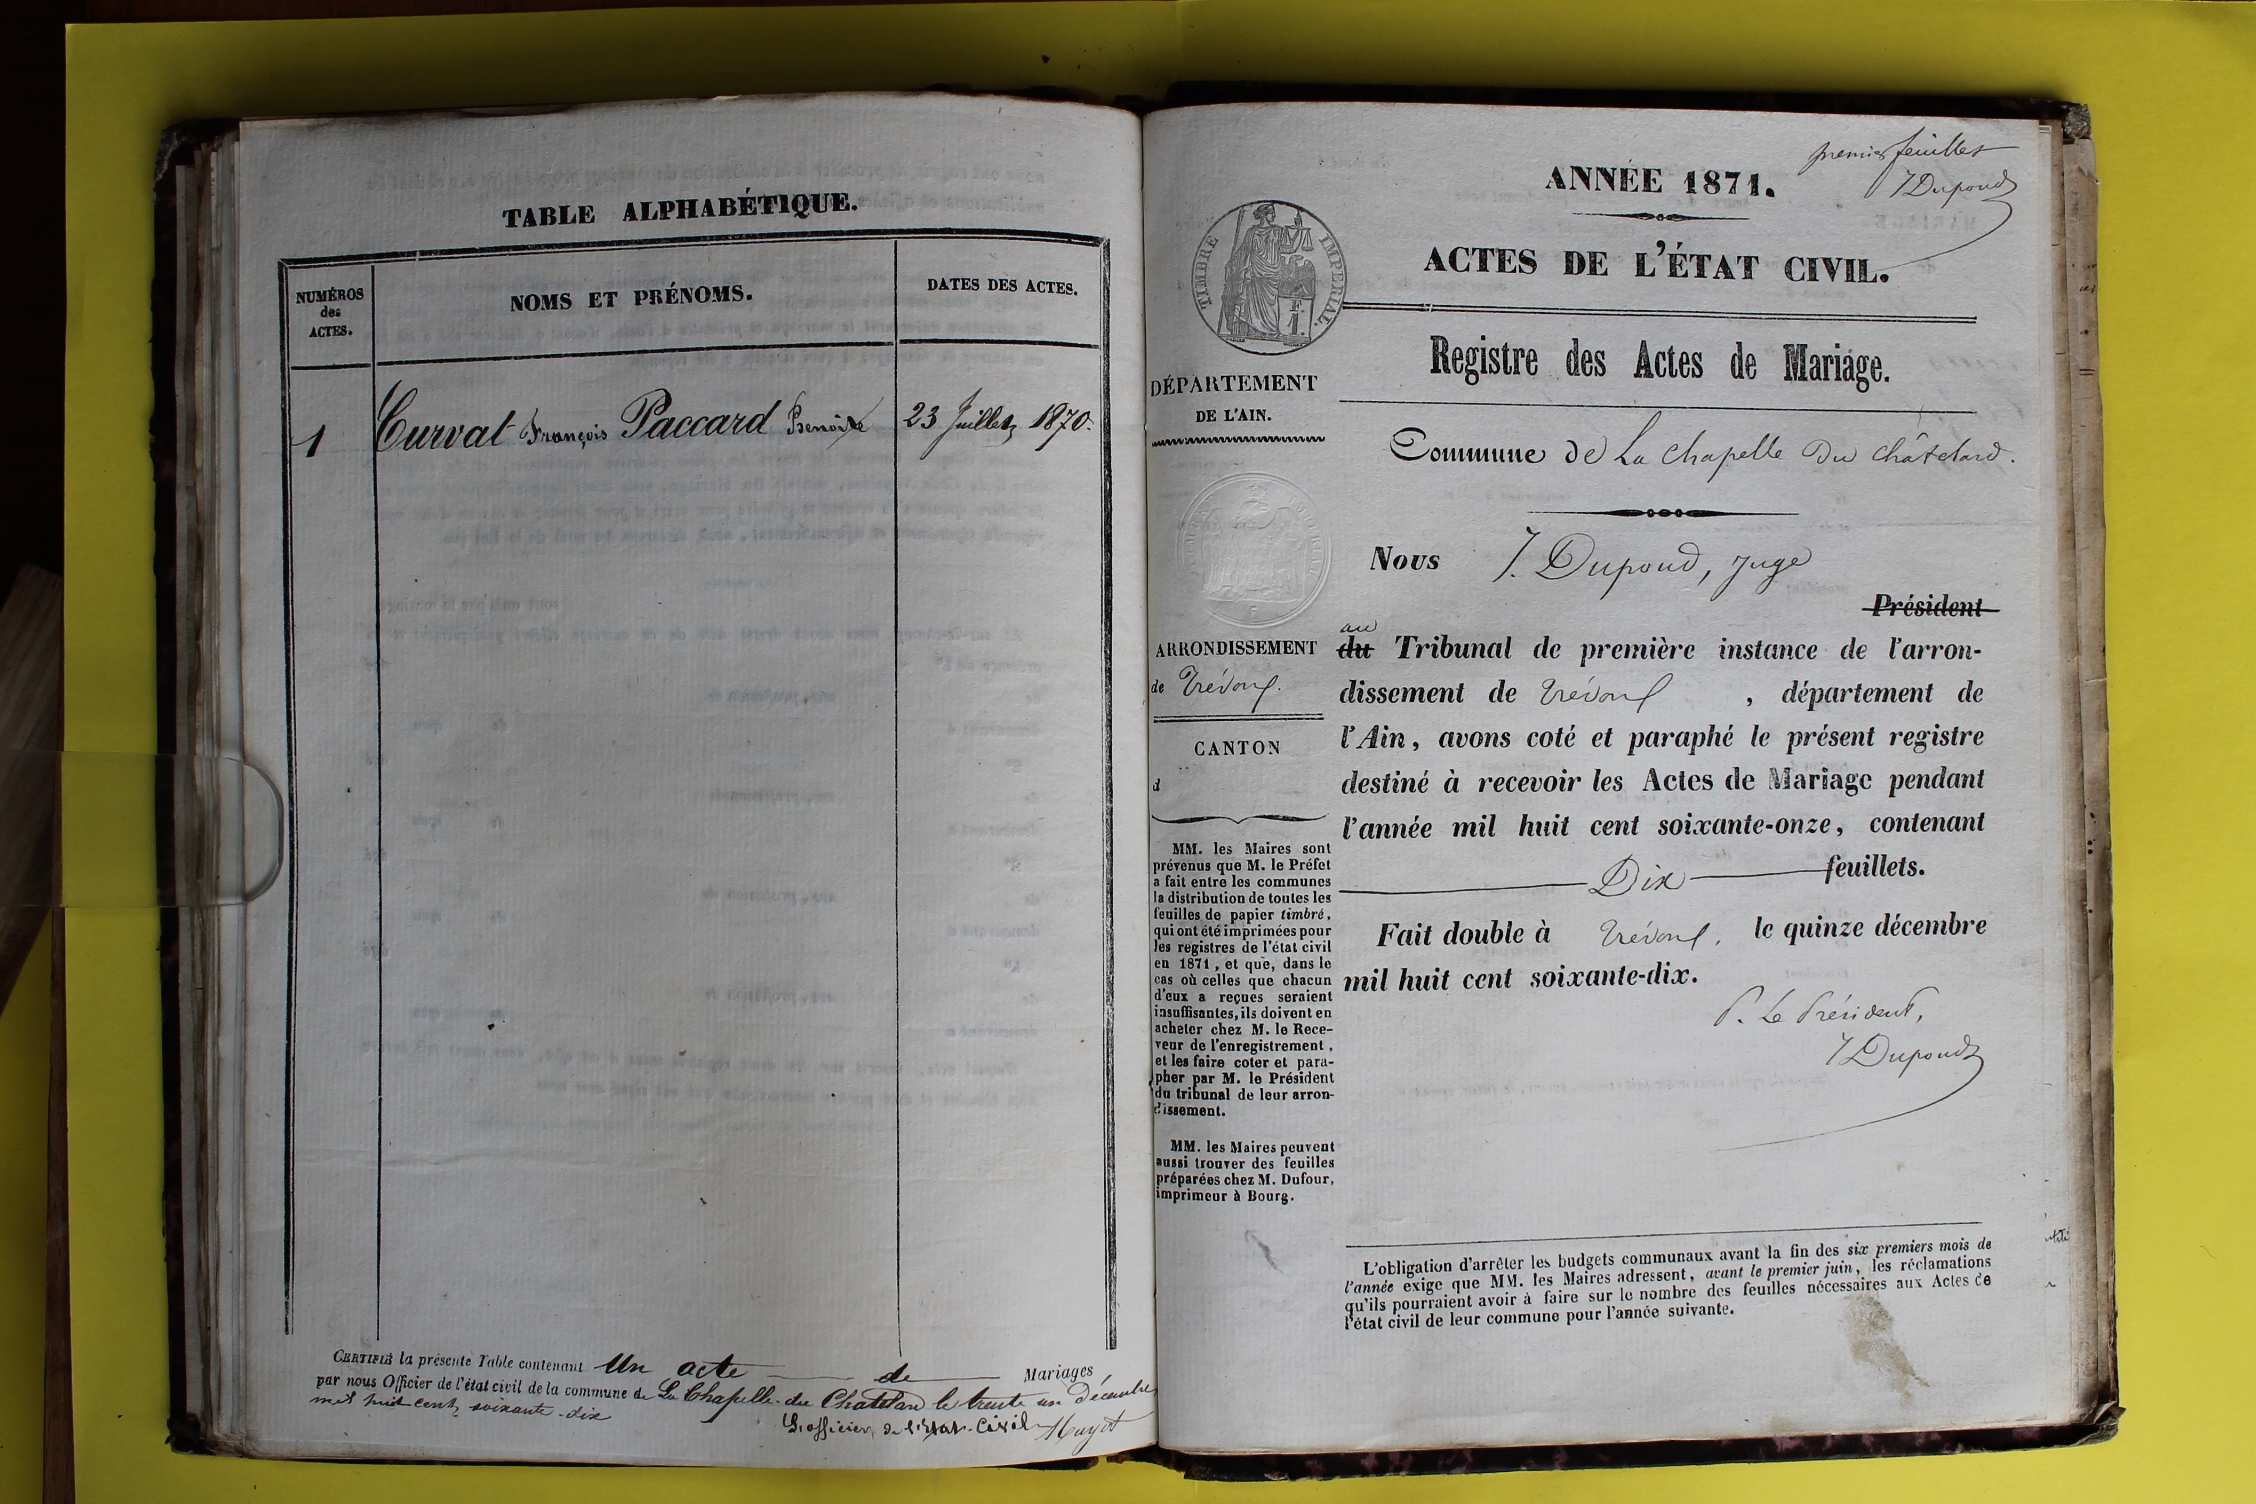 TABLE ALPHABÉTIQUE.
NUMÉROS
des
ACTES.
NOMS ET PRÉNOMS.
DATES DES ACTES.
1
Curvat François Paccard Benoite
23 Juillet 1870.
CERTIFIÉ la présente Table contenant Un acte de Mariages
par nous Officier de l'état civil de la commune de La Chapelle du Chatelard le trente un Décembre
mil huit cent soixante-dix
L'officier de l'Etat-Civil
premier feuillet
J Dupond
ANNÉE 1871.
ACTES DE L'ÉTAT CIVIL.
TIMBRE IMPERIAL.
F.
1.
Registre des Actes de Mariage.
DÉPARTEMENT
DE L'AIN.
Commune de La Chapelle du Châtelard.
Nous J. Dupond, Juge
Président
au
du Tribunal de première instance de l'arron-
dissement de Trévoux, département de
l'Ain, avons coté et paraphé le présent registre
destiné à recevoir les Actes de Mariage pendant
l'année mil huit cent soixante-onze, contenant
Dix feuillets.
Fait double à Trévoux, le quinze décembre
mil huit cent soixante-dix.
P. Le Président,
J Dupond
ARRONDISSEMENT
de Trévoux.
CANTON
d
MM. les Maires sont
prévenus que M. le Préfet
a fait entre les communes
la distribution de toutes les
feuilles de papier timbré,
qui ont été imprimées pour
les registres de l'état civil
en 1871, et que, dans le
cas où celles que chacun
d'eux a reçues seraient
insuffisantes, ils doivent en
acheter chez M. le Rece-
veur de l'enregistrement,
et les faire coter et para-
pher par M. le Président
du tribunal de leur arron-
dissement.
MM. les Maires peuvent
aussi trouver des feuilles
préparées chez M. Dufour,
imprimeur à Bourg.
L'obligation d'arrêter les budgets communaux avant la fin des six premiers mois de
l'année exige que MM. les Maires adressent, avant le premier juin, les réclamations
qu'ils pourraient avoir à faire sur le nombre des feuilles nécessaires aux Actes de
l'état civil de leur commune pour l'année suivante.